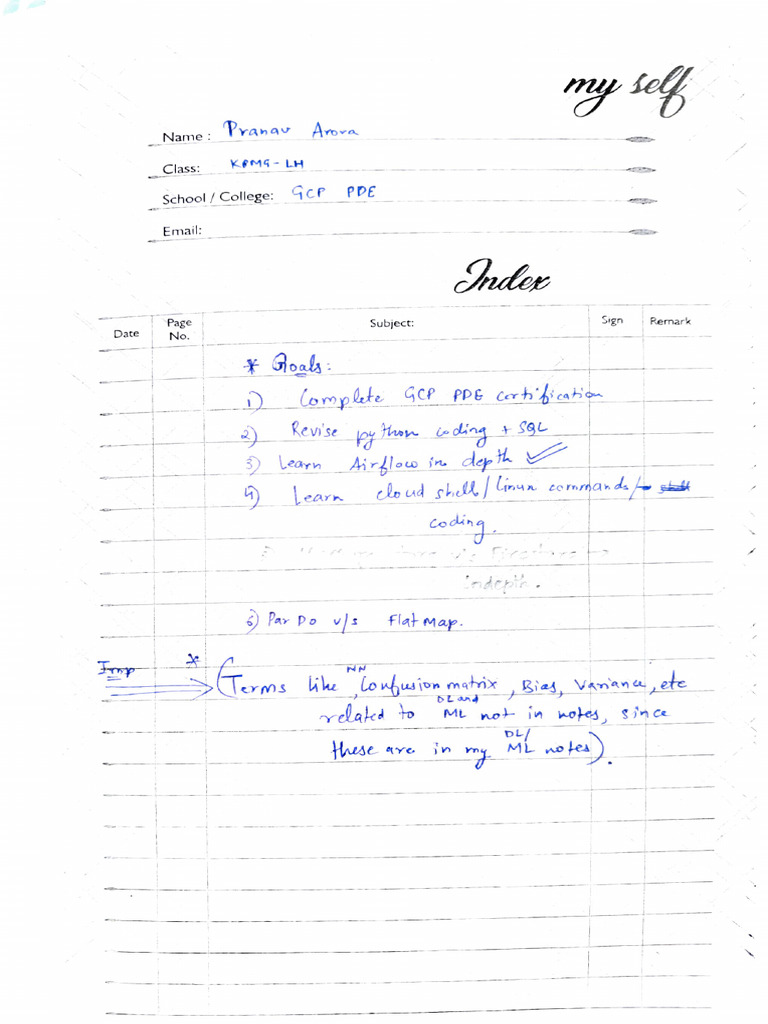 my self
Name : Pranav Arora
Class: KPMG - LH
School / College: GCP PDE
Email:
Index
Date Page No. Subject: Sign Remark
* Goals:
1) Complete GCP PDE certification
2) Revise python coding + SQL
3) Learn Airflow in depth
4) Learn cloud shell/linux commands/ shell
coding.
indepth.
6) ParDo v/s FlatMap.
Imp * (Terms like NN, Confusion matrix, Bias, Variance, etc
related to DL and ML not in notes, since
these are in my DL/ ML notes).